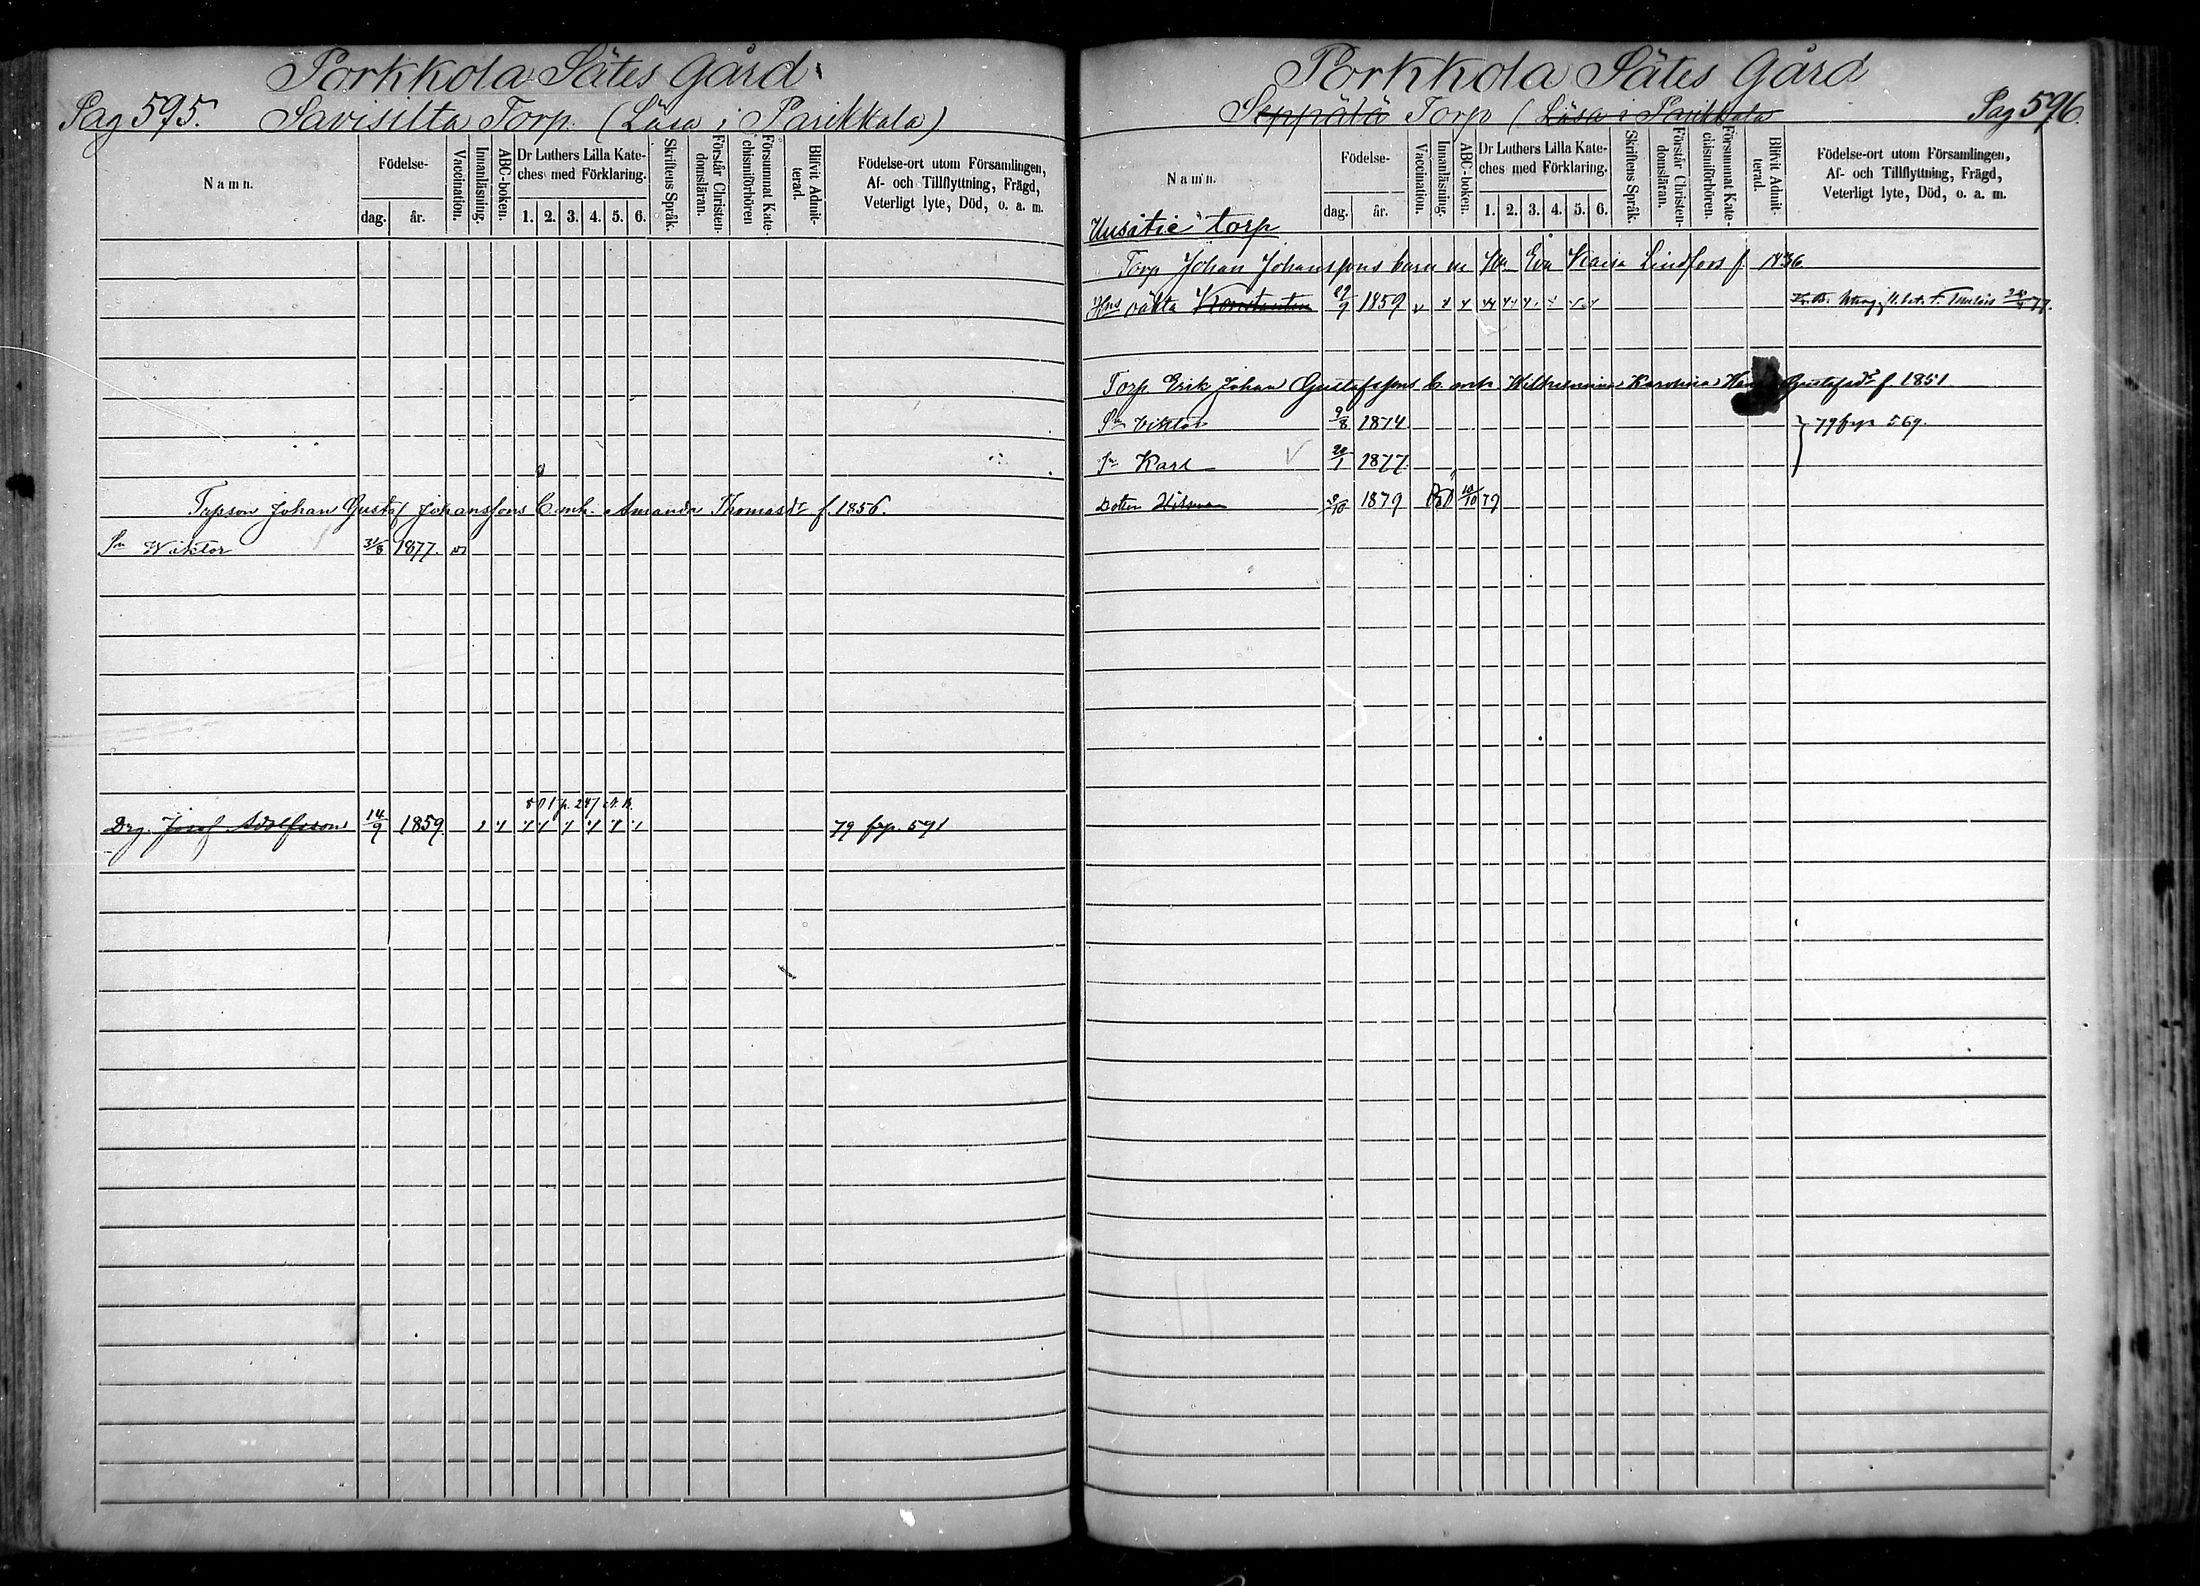 Porkkola Sätes Gård
Pag 595. Savisilta Torp. (Läsa i Parikkala)
Namn.
Födelse-
dag.
år.
Vaccination.
Innanläsning.
ABC-boken.
Dr Luthers Lilla Kate-
ches med Förklaring.
1. 2. 3. 4. 5. 6.
Skriftens Språk.
Förstår Christen-
domsläran.
Försummat Kate-
chismiförhören
Blifvit Admit-
terad.
Födelse-ort utom Församlingen,
Af- och Tillflyttning, Frägd,
Veterligt lyte, Död, o. a. m.
Torpson Johan Gustaf Johanssons b. m h. Amanda Thomasdr f. 1856.
Sn Wiktor 31/8 1877. v
501 p. 247
Drg. Josef Adolfsson 14/9 1859. 79 frp. 591
Porkkola Sätes Gård
Seppälä Torp (Läsa i Parikkala Pag 596.
Namn.
Födelse-
dag.
år.
Vaccination.
Innanläsning.
ABC-boken.
Dr Luthers Lilla Kate-
ches med Förklaring.
1. 2. 3. 4. 5. 6.
Skriftens Språk.
Förstår Christen-
domsläran.
Försummat Kate-
chismiförhören.
Blifvit Admit-
terad.
Födelse-ort utom Församlingen,
Af- och Tillflyttning, Frägd,
Veterligt lyte, Död, o. a. m.
Uusitie torp
Torp Johan Johanssons barn m Eva Kaisa Lindfors f 1836
Hns oäkta Konstantin 29/9 1859 v
Torp. Erik Johan Gustafssons b. m h Wilhelmina Karolina Gustafsdr f. 1851
Sn Viktor 9/8 1874 } 79 frp 569.
Sn Karl 1877.
Dotter Hilma 9/10 1879 Död 10/10 79